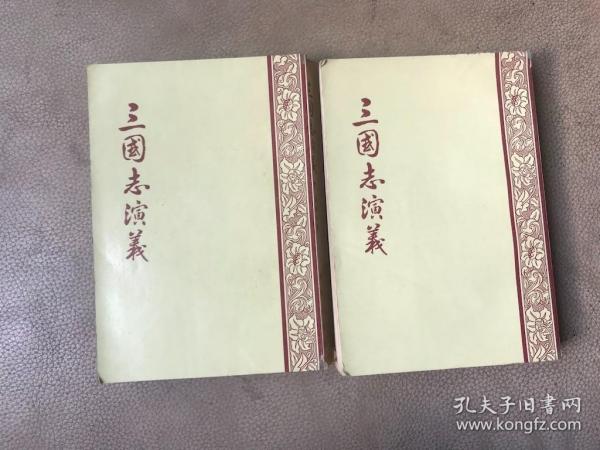 三國志演義
三國志演義
孔夫子旧书网
www.kongfz.com